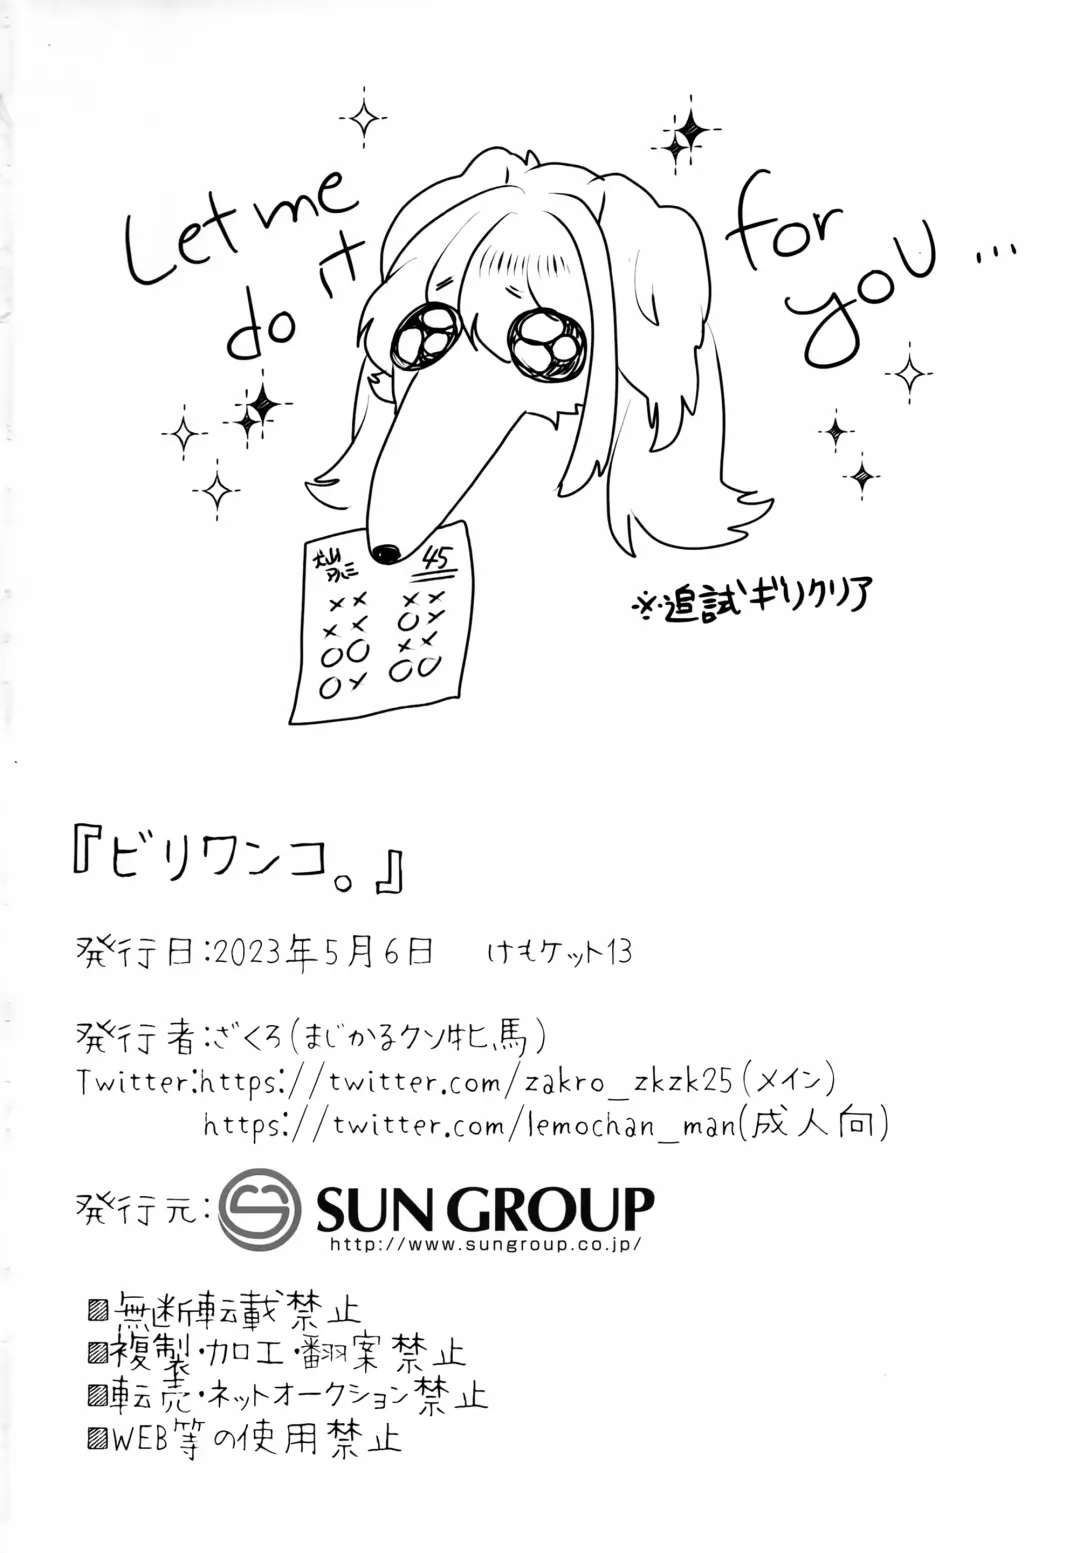 Let me
do it
for
you...
45
××
××
○○
○×
××
○×
××
○○
※追試ギリクリア
『ビリワンコ。』
発行日:2023年5月6日 けもケット13
発行者:ざくろ(まじかるクソ牝馬)
Twitter:https://twitter.com/zakro_zkzk25(メイン)
https://twitter.com/lemochan_man(成人向)
発行元:SUN GROUP
http://www.sungroup.co.jp/
▨無断転載禁止
▨複製・加工・翻案禁止
▨転売・ネットオークション禁止
▨WEB等の使用禁止